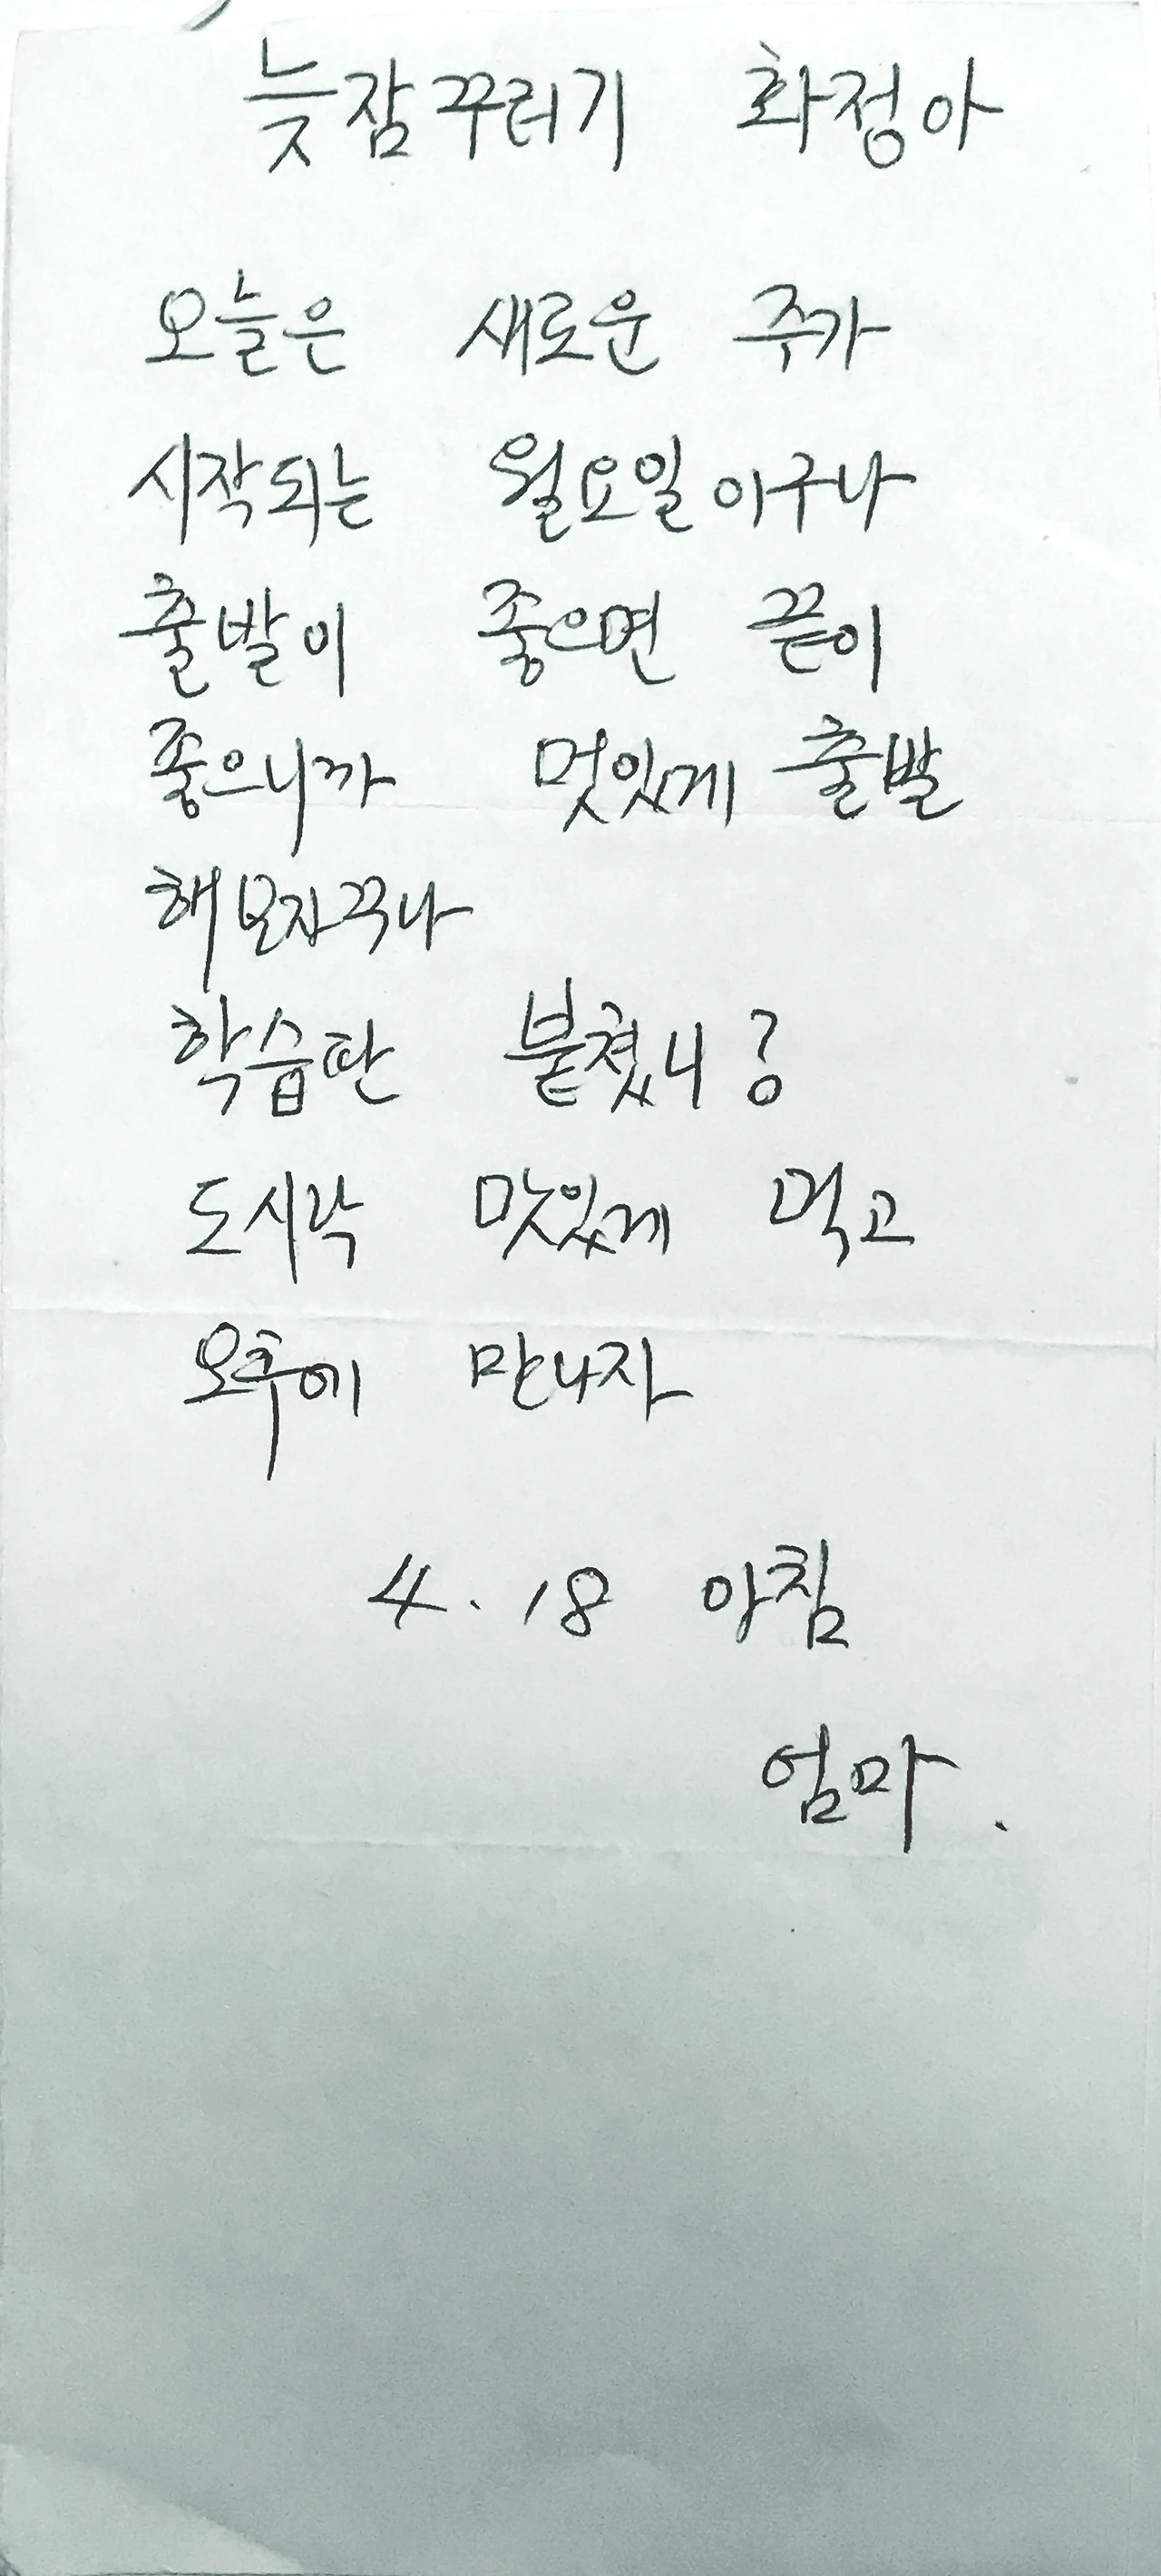 늦잠꾸러기 화정아
오늘은 새로운 주가
시작되는 월요일이구나
출발이 좋으면 끝이
좋으니까 멋있게 출발
해보자꾸나
학습란 붙혔니?
도시락 맛있게 먹고
오후에 만나자
4. 18 아침
엄마.